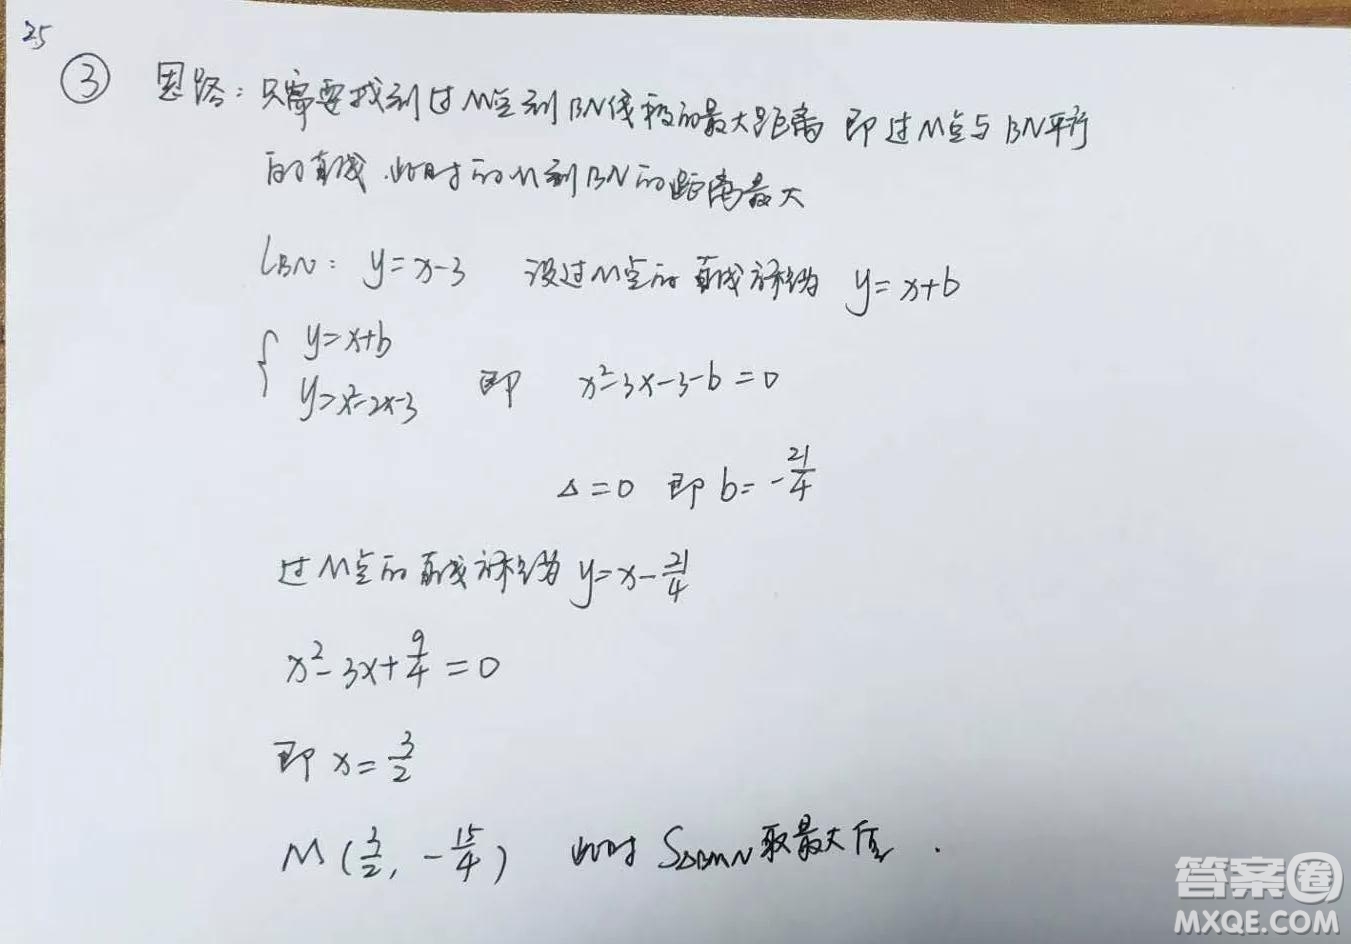 25
③ 思路：只需要找到过M点到BN线段的最大距离 即过M点与BN平行
的直线.此时的M到BN的距离最大
LBN: y=x-3 设过M点的直线方程为 y=x+b
{ y=x+b
y=x²-2x-3 即 x²-3x-3-b=0
Δ=0 即 b=-21/4
过M点的直线方程为 y=x-21/4
x²-3x+9/4=0
即 x=3/2
M(3/2, -15/4) 此时 S△BMN取最大值.
答案圈
MXQE.COM